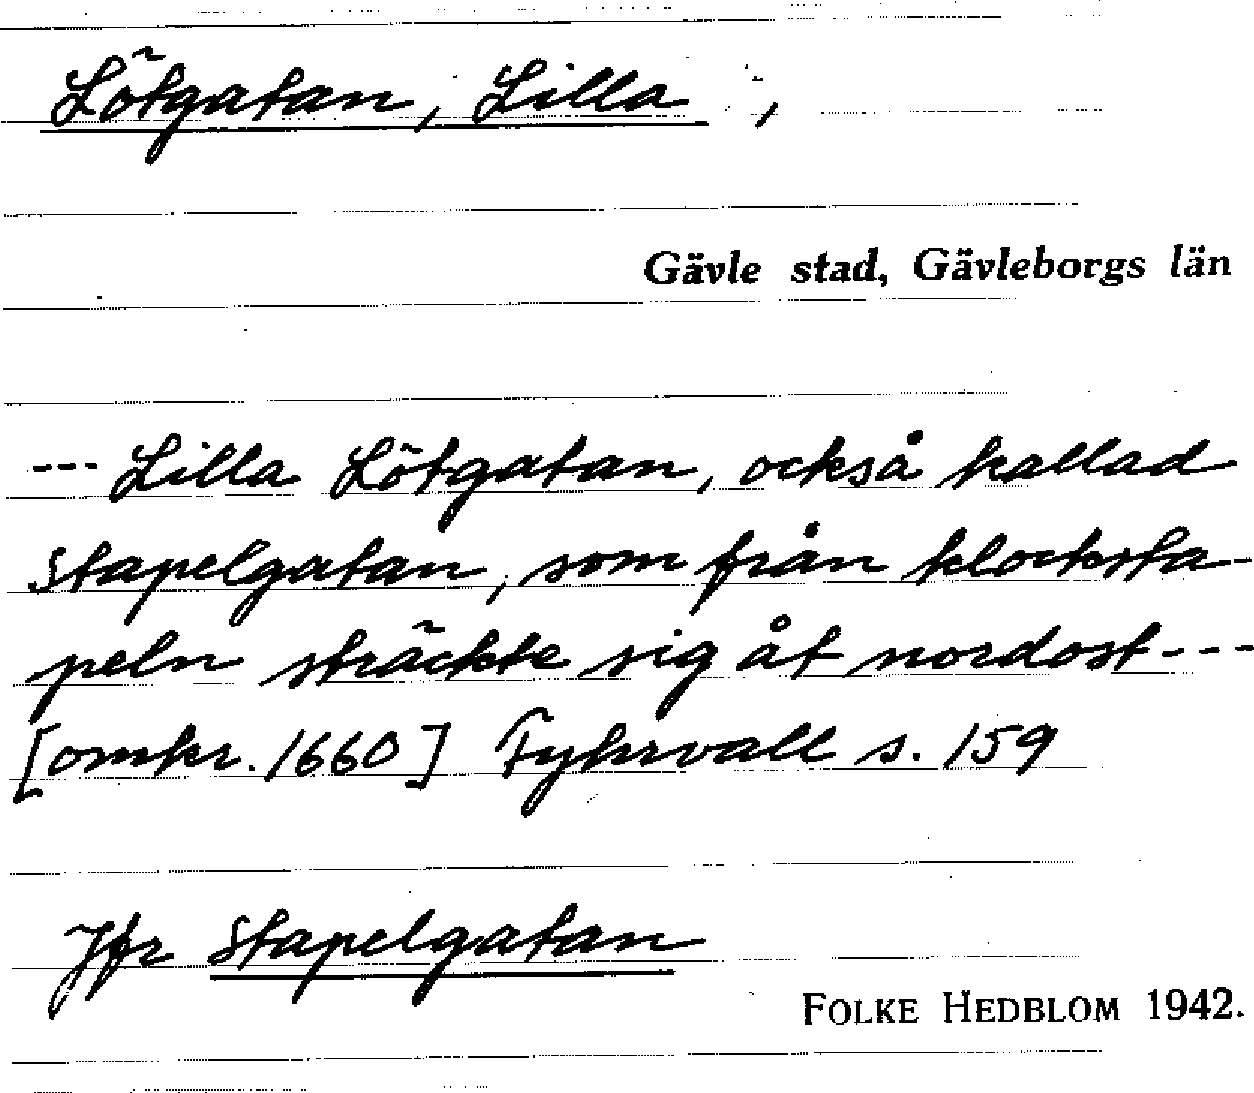 Lötgatan, Lilla ,
Gävle stad, Gävleborgs län
--- Lilla Lötgatan, också kallad
Stapelgatan, som från klocksta-
peln sträckte sig åt nordost ---
[omkr. 1660] Fyhrvall s. 159
Jfr Stapelgatan
FOLKE HEDBLOM 1942.